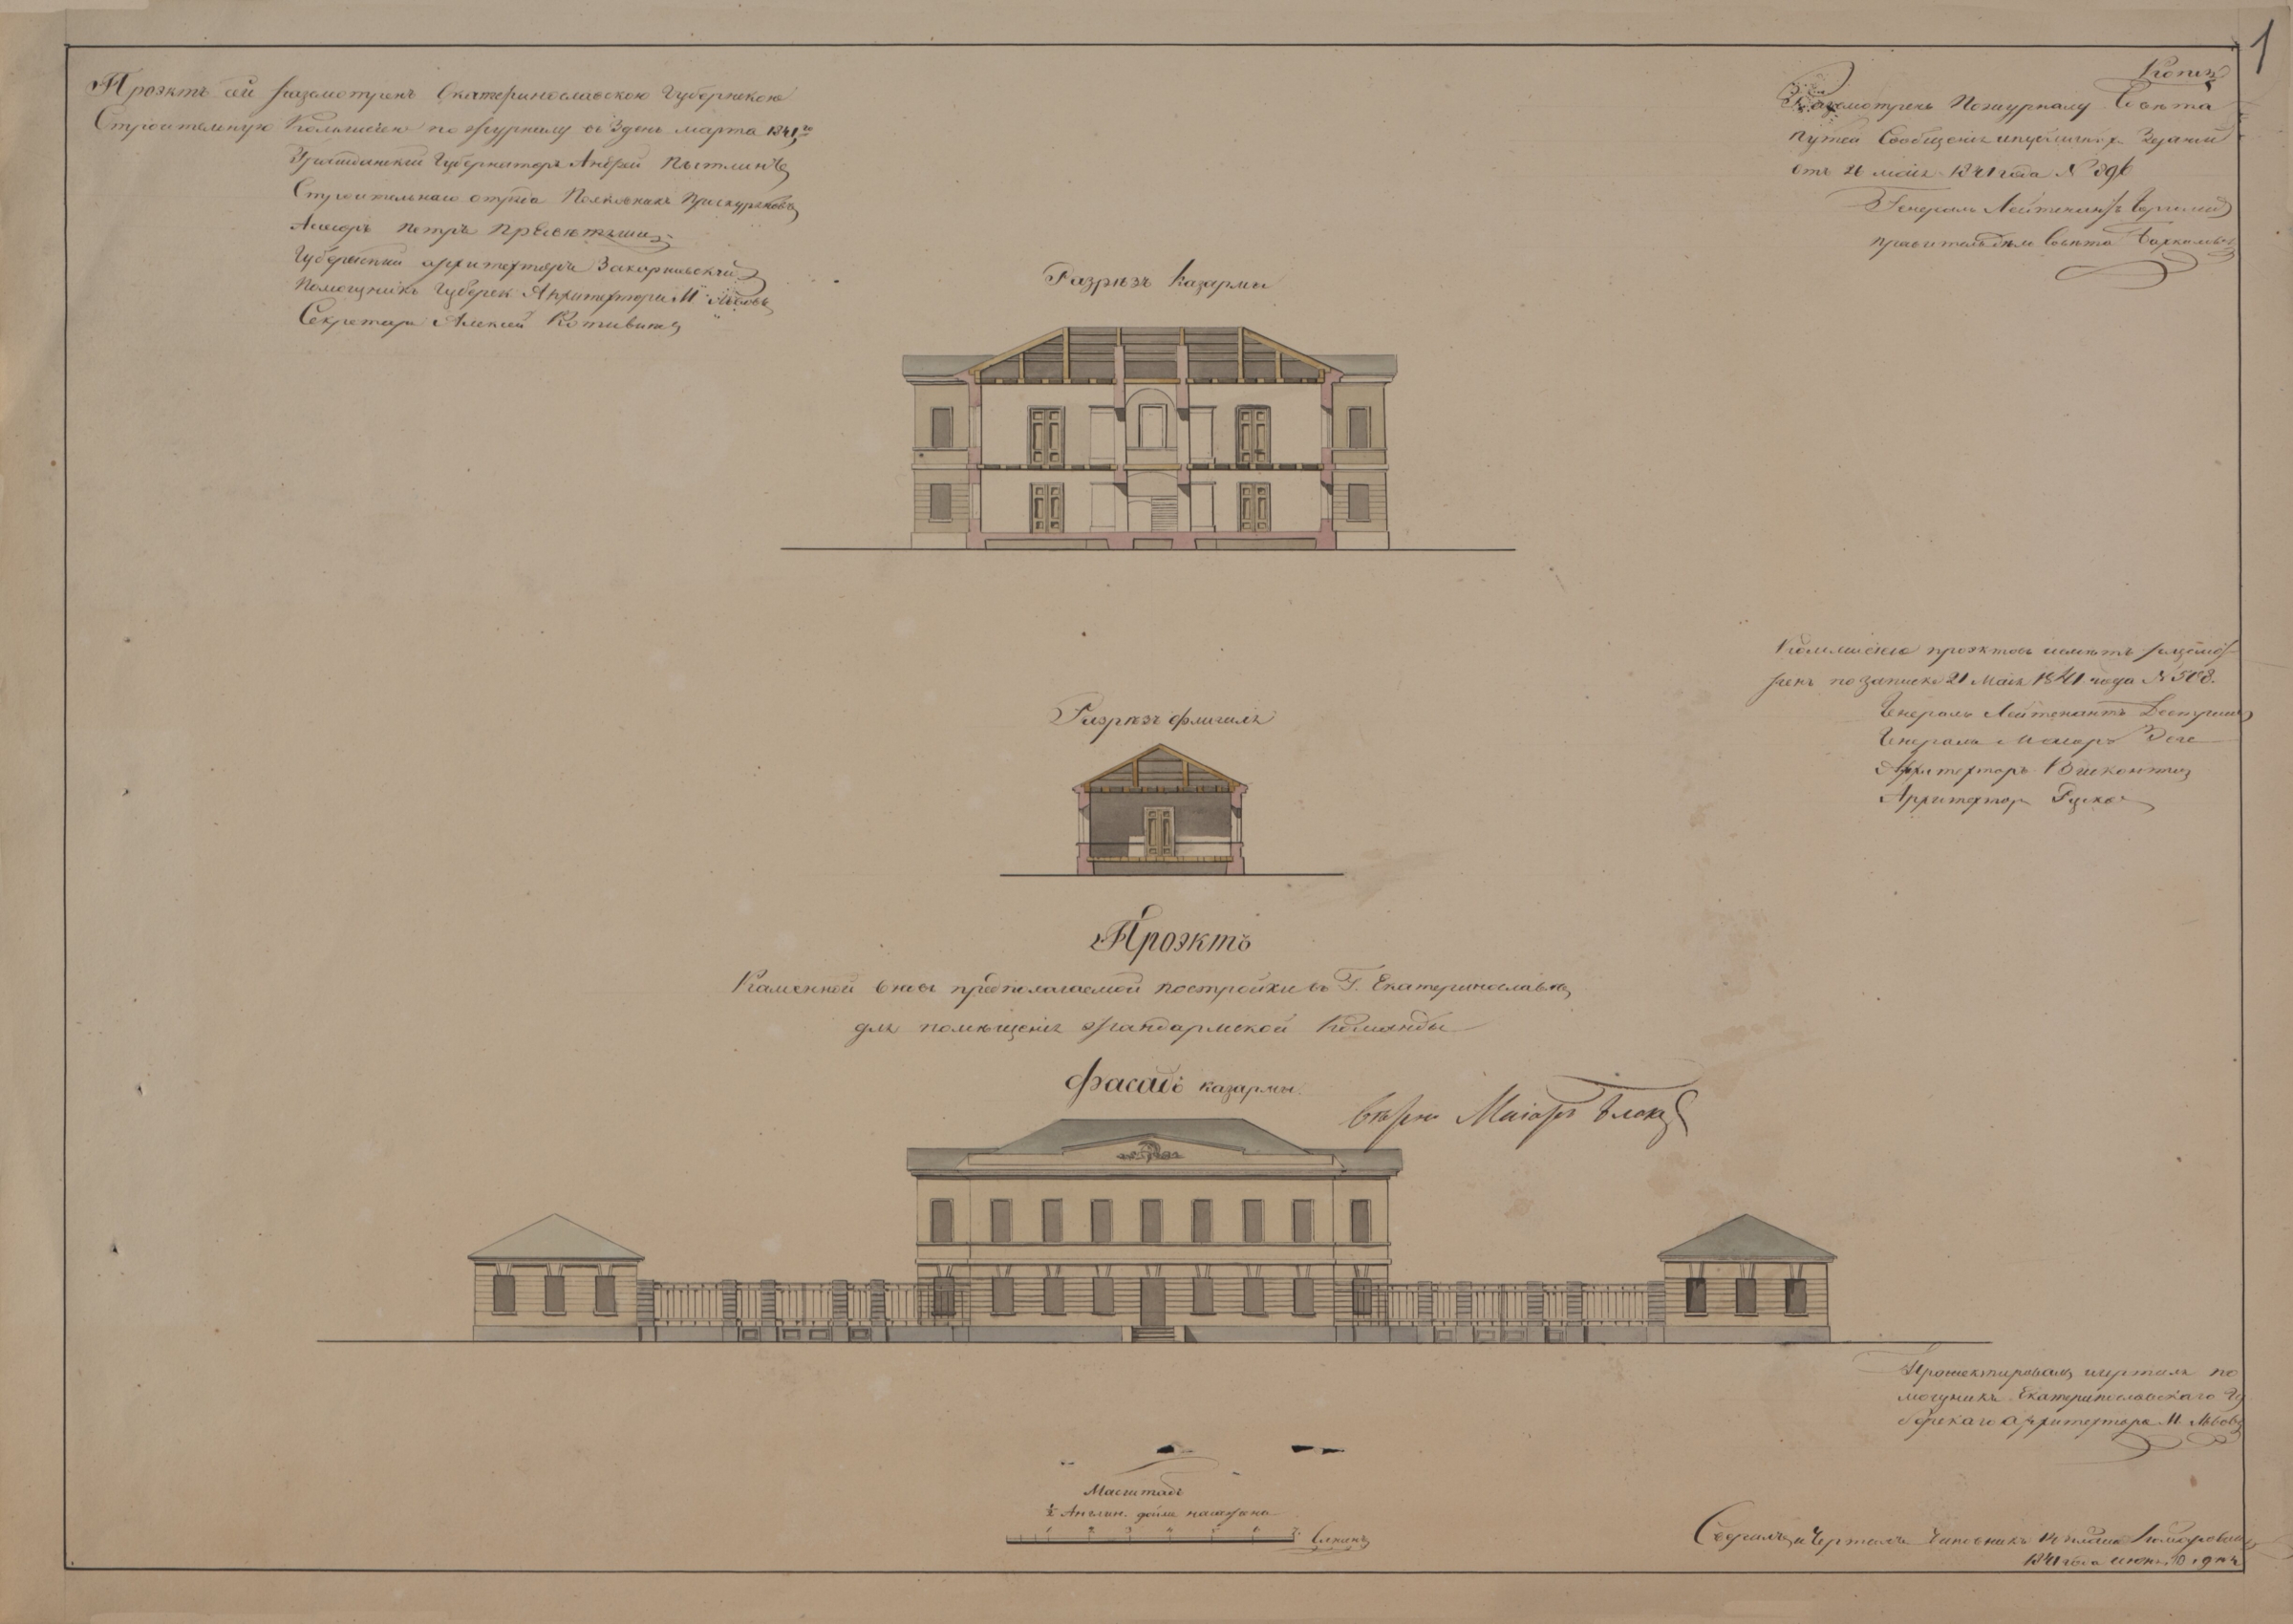 Проэктъ сей разсмотренъ Екатеринославскою Губернскою
Строительною Коммисіею по журналу въ 3 день марта 1841 го
Гражданскій Губернаторъ Андрей Пестлинъ
Строительнаго отряда Полковникъ
Асесоръ Петръ
Губернскій архитекторъ
Помощникъ Губерск. Архитектора М. Львовъ
Секретарь Алексей
1
Копія
Разсмотренъ По журналу Совѣта
Путей Сообщенія и публичных Зданій
отъ 26 маія 1841 года № 396
Генералъ Лейтенантъ
правитель дѣлъ Совѣта
Разрѣзъ казармы
Коммисіею проэктовъ и смѣтъ разсмот-
ренъ по записке 21 Маія 1841 года № 508.
Генералъ Лейтенантъ Дестремъ
Генералъ Маіоръ
Архитекторъ Висконти
Архитектор Руска
Разрѣзъ флигиля
Проэктъ
Каменной вновь предполагаемой постройки въ Г. Екатеринославлѣ
для помѣщенія Жандармской Команды
Фасадъ казармы
Вѣрно Маіоръ
Проэктировалъ и чертилъ по
мощникъ Екатеринославскаго Гу
бернскаго архитектора М. Львовъ
Масштабъ
½ Англин. дюйма на сажень
1 2 3 4 5 6 7 Сажень
и Чертилъ Чиновникъ
1841 года июня 10 дня